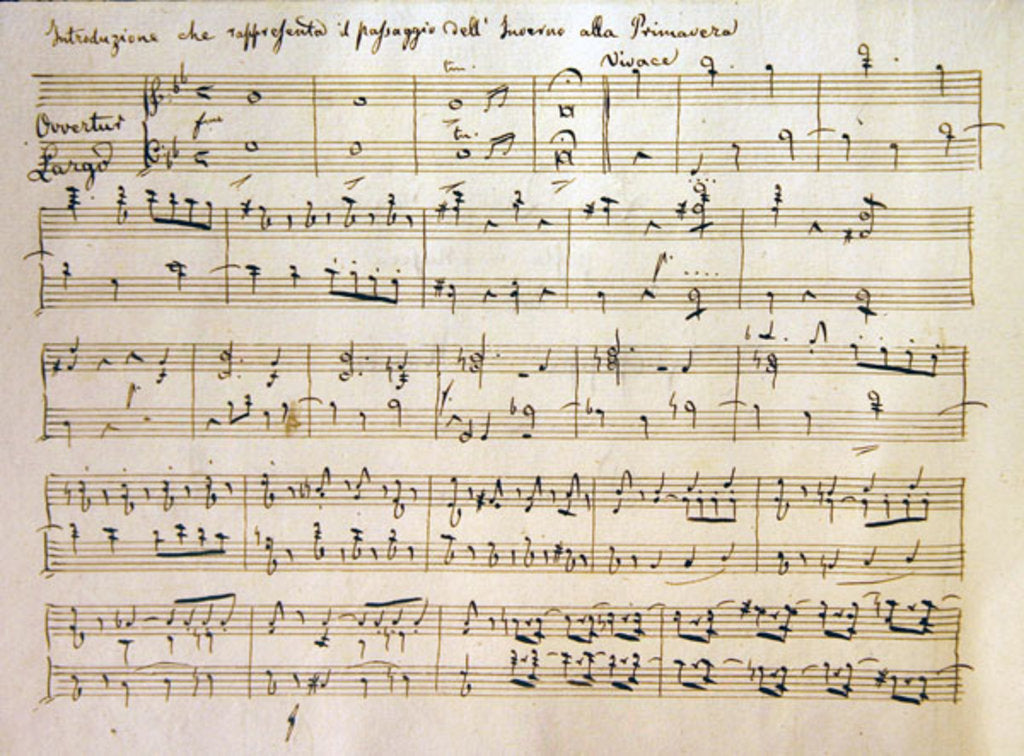 Introduzione che rappresenta il passaggio dell' Inverno alla Primavera
Vivace
tr.
Overtur
tr.
Largo